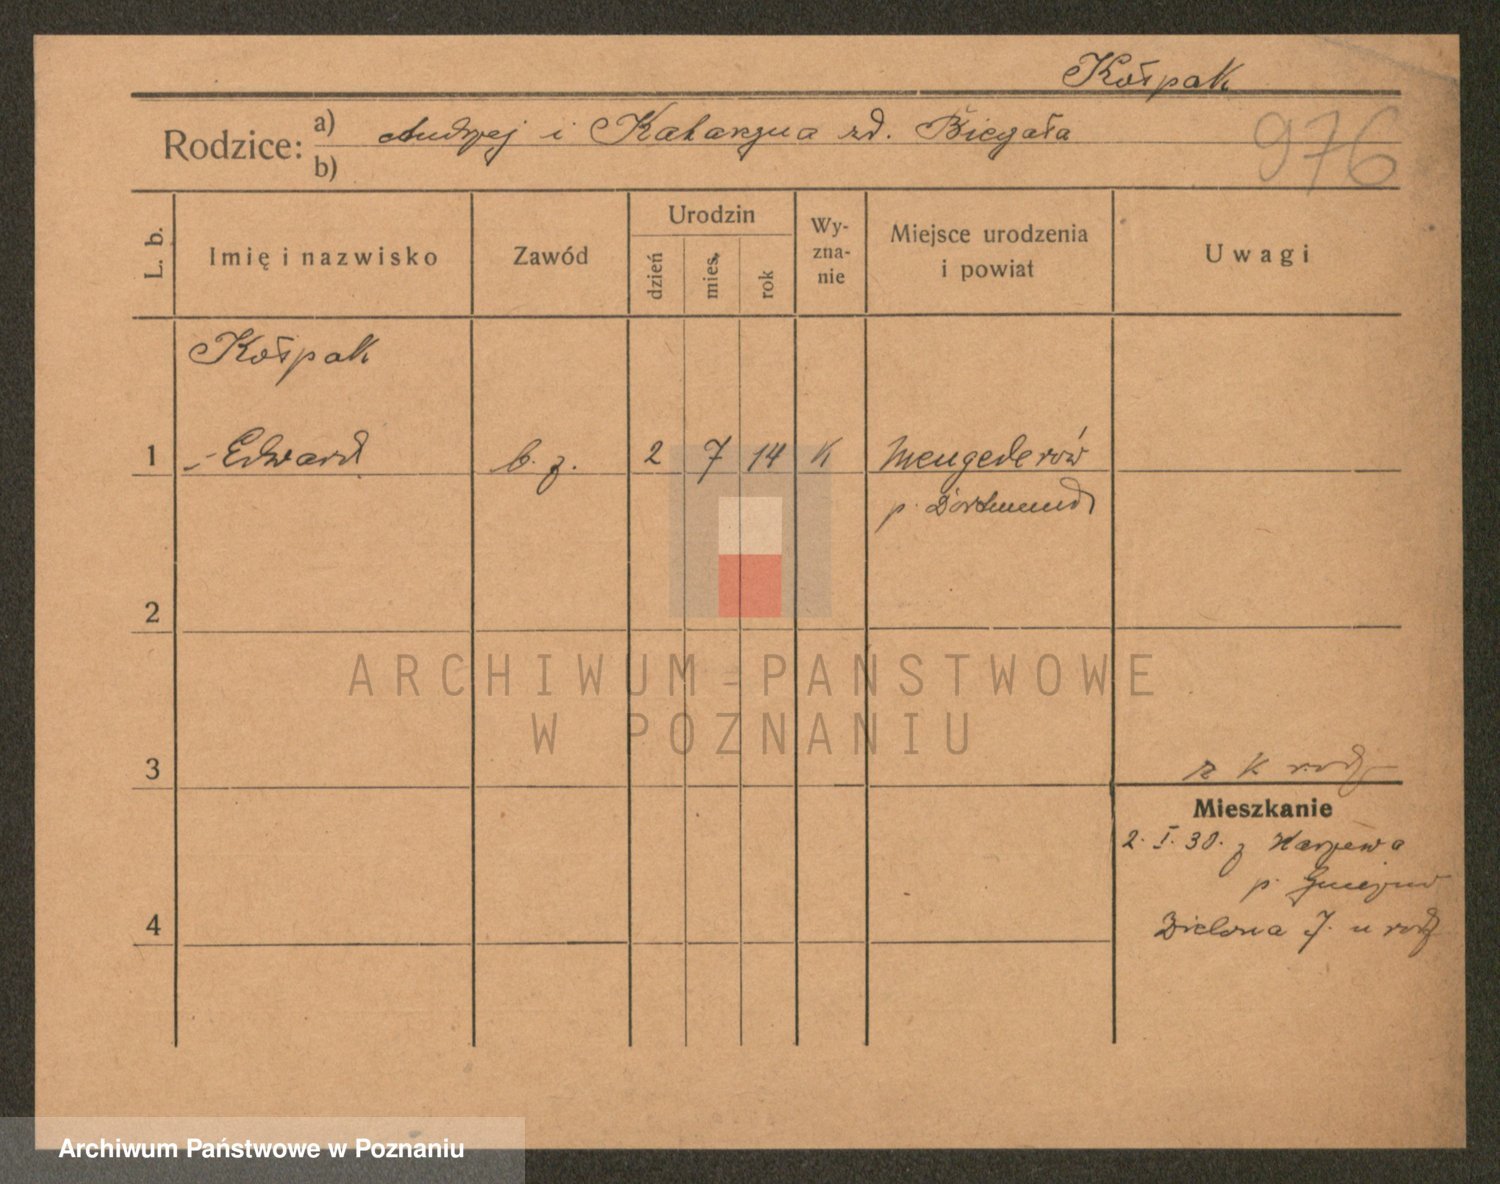 Kołpak
Rodzice: a) Andrzej i Katarzyna zd. Biegała
b)
976
L. b.
Imię i nazwisko
Zawód
Urodzin
dzień
mies.
rok
Wy-
zna-
nie
Miejsce urodzenia
i powiat
Uwagi
Kołpak
1 - Edward b. z. 2 7 14 K Mengede rów
p. Dortmund
2
ARCHIWUM PAŃSTWOWE
W POZNANIU
3
z K rodz
Mieszkanie
2. I. 30. z Karzewa
p. Gniezno
4
7. u rodz
Archiwum Państwowe w Poznaniu